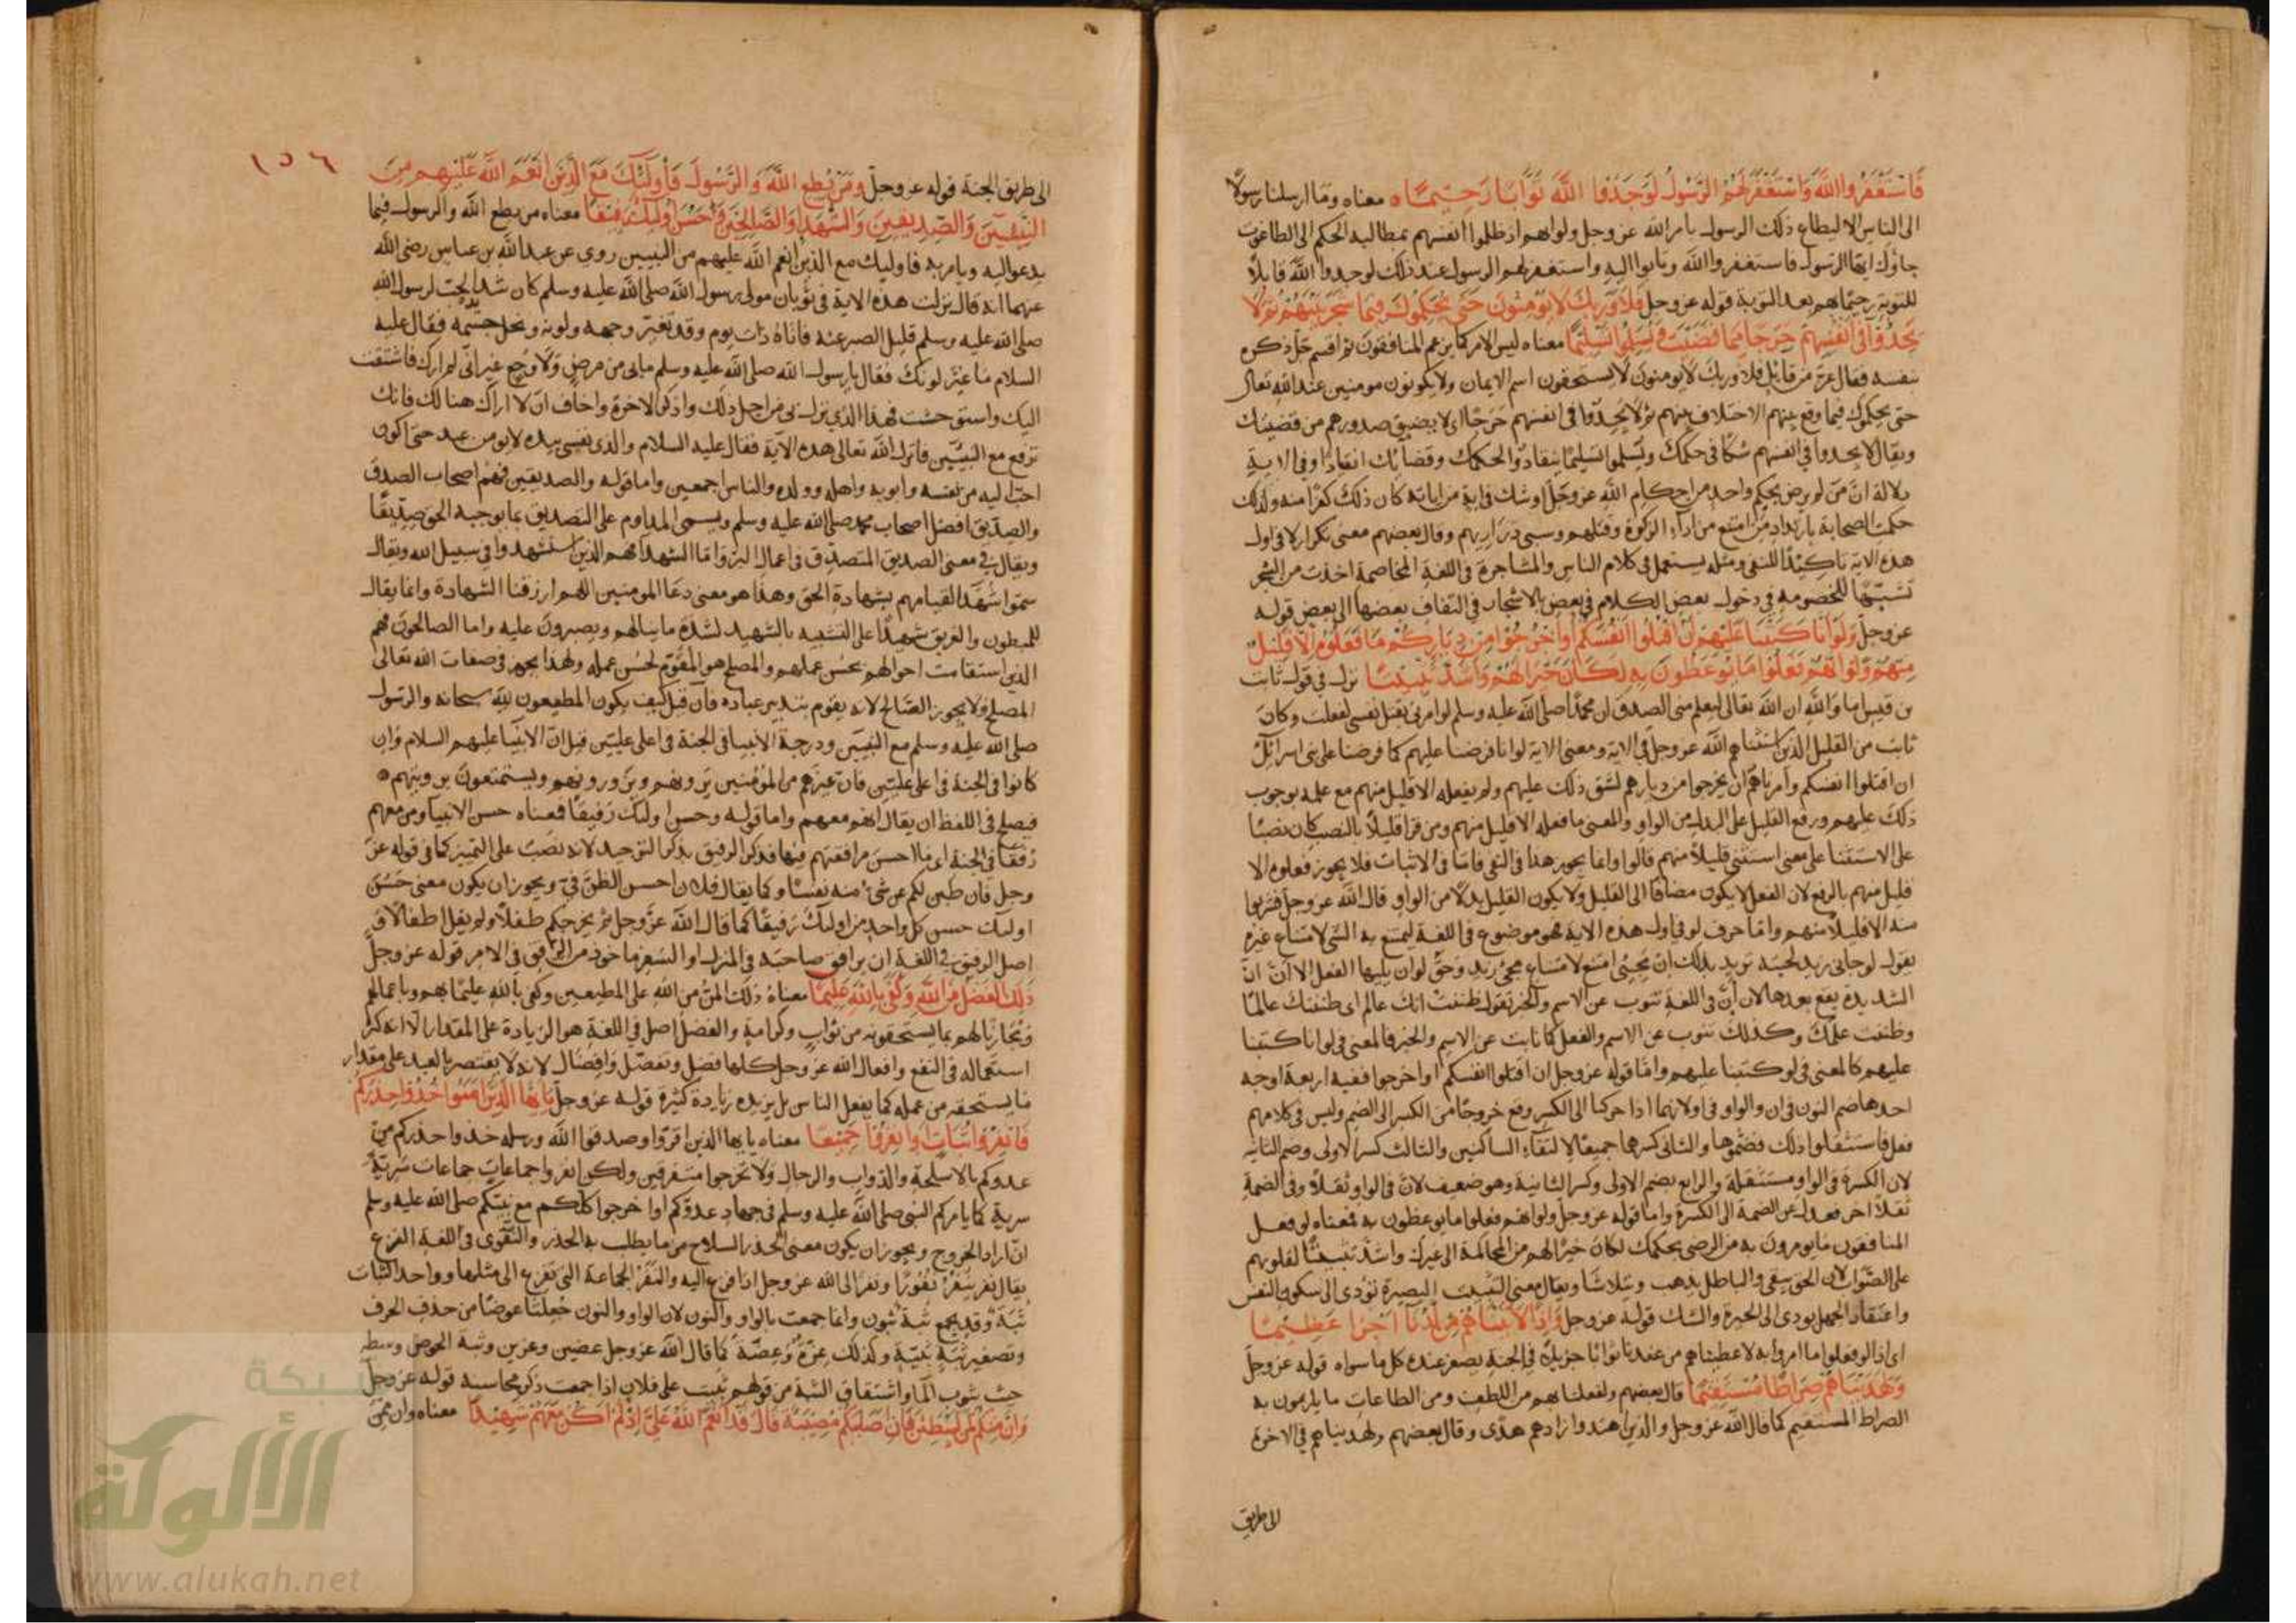 فَاسْتَغْفَرُوا اللَّهَ وَاسْتَغْفَرَ لَهُمُ الرَّسُولُ لَوَجَدُوا اللَّهَ تَوَّابًا رَحِيمًا ه معناه وما ارسلنا رسولًا
الى الناس الا ليطاع ذلك الرسول بامر الله عز وجل ولو انهم اذ ظلموا انفسهم بمطالبة الحكم الى الطاغوت
جاؤك ايها الرسول فاستغفروا الله وتابوا اليه واستغفر لهم الرسول عند ذلك لوجدوا الله قابلًا
للتوبة رحيمًا بهم بعد التوبة قوله عز وجل فَلَا وَرَبِّكَ لَا يُؤْمِنُونَ حَتَّى يُحَكِّمُوكَ فِيمَا شَجَرَ بَيْنَهُمْ ثُمَّ لَا
يَجِدُوا فِي أَنْفُسِهِمْ حَرَجًا مِمَّا قَضَيْتَ وَيُسَلِّمُوا تَسْلِيمًا معناه ليس الامر كما يزعم المنافقون ثم اقسم جل ذكره
بنفسه فقال عز من قائل فلا وربك لا يؤمنون لا يستحقون اسم الايمان ولا يكونون مومنين عند الله تعالى
حتى يحكموك فيما وقع بينهم الاختلاف بينهم ثم لا يجدوا فى انفسهم حرجًا اى لا يضيق صدورهم من قضيتك
ويقال لا يجدوا في انفسهم شكًا فى حكمك ويسلموا تسليمًا ينقادوا لحكمك وقضائك انقيادًا وفي الاية
دلالة ان من لم يرض بحكم واحد من احكام الله عز وجل او شك في اية من اياته كان ذلك كفرًا منه ولذلك
حكمت الصحابة بارتداد من امتنع من اداء الزكوة وقتلهم وسبى ذراريهم وقال بعضهم معنى تكرار لا فى اول
هذه الاية تاكيدًا للنفى ومثله يستعمل فى كلام الناس والمشاجرة فى اللغة المخاصمة اخذت من الشجر
تشبيهًا للخصومة في دخول بعض الكلام في بعض بالاشجار في التفاف بعضها الى بعض قوله
عز وجل وَلَوْ أَنَّا كَتَبْنَا عَلَيْهِمْ أَنِ اقْتُلُوا أَنْفُسَكُمْ أَوِ اخْرُجُوا مِنْ دِيَارِكُمْ مَا فَعَلُوهُ إِلَّا قَلِيلٌ
مِنْهُمْ وَلَوْ أَنَّهُمْ فَعَلُوا مَا يُوعَظُونَ بِهِ لَكَانَ خَيْرًا لَهُمْ وَأَشَدَّ تَثْبِيتًا نزل في قول ثابت
بن قيس اما والله ان الله تعالى ليعلم منى الصدق ان محمدًا صلى الله عليه وسلم لو امرنى بقتل نفسى لفعلت وكان
ثابت من القليل الذين استثناهم الله عز وجل في الاية ومعنى الاية لو انا فرضنا عليهم كما فرضنا على بنى اسرائيل
ان اقتلوا انفسكم وامرناهم ان يخرجوا من ديارهم لشق ذلك عليهم ولم يفعله الا قليل منهم مع علمه بوجوب
ذلك عليهم ورفع القليل على البدل من الواو والمعنى ما فعله الا قليل منهم ومن قرا قليلًا بالنصب كان نصبًا
على الاستثنا على معنى استثنى قليلًا منهم قالوا وانما يجوز هذا فى النفى فاما فى الاثبات فلا يجوز فعلوه الا
قليل منهم بالرفع لان الفعل لا يكون مضافًا الى القليل ولا يكون القليل بدلًا من الواو قال الله عز وجل فشربوا
منه الا قليلًا منهم واما حرف لو في اول هذه الاية فهو موضوع فى اللغة ليمتنع به الشى لامتناع غيره
يقول لو جانى زيد لجئته تريد بذلك ان مجيئى امتنع لامتناع مجئ زيد وحق لو ان يليها الفعل الا ان انّ
الشديدة يقع بعدها لان انّ فى اللغة تنوب عن الاسم والخبر تقول ظننت انك عالم اى ظننتك عالمًا
وظننت علمك وكذلك تنوب عن الاسم والفعل كما نابت عن الاسم والخبر فالمعنى فى لو انا كتبنا
عليهم كالمعنى فى لو كتبنا عليهم واما قوله عز وجل ان اقتلوا انفسكم او اخرجوا ففيه اربعة اوجه
احدها ضم النون فى ان والواو فى او لانهما اذا حركتا الى الكسر وقع خروجًا من الكسر الى الضم وليس فى كلامهم
فعل فاستثقلوا ذلك فضموها والثانى كسرهما جميعًا لالتقاء الساكنين والثالث كسر الاولى وضم الثانية
لان الكسرة فى الواو مستثقلة والرابع بضم الاولى وكسر الثانية وهو ضعيف لان فى الواو ثقلًا وفى الضمة
ثقلًا اخر فعدل عن الضمة الى الكسرة واما قوله عز وجل ولو انهم فعلوا ما يوعظون به فمعناه لو فعل
المنافقون ما يومرون به من الرضى بحكمك لكان خيرًا لهم من المحاكمة الى غيرك واشد تثبيتًا لقلوبهم
على الصواب لان الحق يبقى والباطل يذهب ويتلاشا ويقال معنى التثبيت البصيرة تؤدى الى سكون النفس
واعتقاد الجهل يودى الى الحيرة والشك قوله عز وجل وَإِذًا لَآتَيْنَاهُمْ مِنْ لَدُنَّا أَجْرًا عَظِيمًا
اى اذا لو فعلوا ما امروا به لاعطيناهم من عندنا ثوابًا جزيلًا في الجنة يصغر عنده كل ما سواه قوله عز وجل
وَلَهَدَيْنَاهُمْ صِرَاطًا مُسْتَقِيمًا قال بعضهم ولفعلنا بهم من اللطف ومن الطاعات ما يلزمون به
الصراط المستقيم كما قال الله عز وجل والذين اهتدوا زادهم هدًى وقال بعضهم ولهديناهم في الاخرة
الى طريق
١٥٦
الى طريق الجنة قوله عز وجل وَمَنْ يُطِعِ اللَّهَ وَالرَّسُولَ فَأُولَئِكَ مَعَ الَّذِينَ أَنْعَمَ اللَّهُ عَلَيْهِمْ مِنَ
النَّبِيِّينَ وَالصِّدِّيقِينَ وَالشُّهَدَاءِ وَالصَّالِحِينَ وَحَسُنَ أُولَئِكَ رَفِيقًا معناه من يطع الله والرسول فيما
يدعو اليه ويامر به فاوليك مع الذين انعم الله عليهم من النبيين روي عن عبد الله بن عباس رضى الله
عنهما انه قال نزلت هذه الاية فى ثوبان مولى رسول الله صلى الله عليه وسلم كان شديد الحب لرسول الله
صلى الله عليه وسلم قليل الصبر عنه فاتاه ذات يوم وقد تغير وجهه ولونه ونحل جسمه فقال عليه
السلام ما غير لونك فقال يا رسول الله صلى الله عليه وسلم مابى من مرض ولا وجع غير انى لم ارك فاشتقت
اليك واستوحشت فهذا الذى نزل بى من اجل ذلك واذكر الاخرة واخاف ان لا اراك هنالك فانك
ترفع مع النبيين فانزل الله تعالى هذه الاية فقال عليه السلام والذى نفسى بيده لا يومن عبد حتى اكون
احب اليه من نفسه وابويه واهله وولده والناس اجمعين واما قوله والصديقين فهم اصحاب الصدق
والصديق افضل اصحاب محمد صلى الله عليه وسلم ويسمى المداوم على التصديق بما يوجبه الحق صديقًا
ويقال في معنى الصديق المتصدق فى اعمال البر واما الشهدا فهم الذين استشهدوا فى سبيل الله ويقال
سموا شهدا لقيامهم بشهادة الحق وهذا هو معنى دعا المومنين اللهم ارزقنا الشهادة وانما يقال
للمبطون والغريق شهيدًا على التشبيه بالشهيد لشدة ما ينالهم ويصبرون عليه واما الصالحون فهم
الذين استقامت احوالهم بحسن عملهم والمصلح هو المقوم لحسن عمله ولهذا يجوز فى صفات الله تعالى
المصلح ولا يجوز الصالح لانه يقوم بتدبير عباده فان قيل كيف يكون المطيعون لله سبحانه والرسول
صلى الله عليه وسلم مع النبيين ودرجة الانبيا فى الجنة فى اعلى عليين قيل ان الانبيا عليهم السلام وان
كانوا فى الجنة فى اعلى عليين فان غيرهم من المؤمنين يرونهم ويزورونهم ويستمتعون برويتهم ه
فيصلح فى اللفظ ان يقال انهم معهم واما قوله وحسن اوليك رفيقًا فمعناه حسن الانبيا ومن معهم
رفقًا فى الجنة اى ما احسن مرافقتهم فيها فذكر الرفيق بذكر التوحيد لانه نصب على التمييز كما فى قوله عز
وجل فان طبن لكم عن شئ منه نفسًا وكما يقال فلان احسن الظن في ويجوز ان يكون معنى حسن
اوليك حسن كل واحد من اوليك رفيقًا كما قال الله عز وجل ثم يخرجكم طفلًا ولم يقل اطفالًا و
اصل الرفيق في اللغة ان يرافق صاحبه فى المنزل او السفر ماخوذ من الرفق فى الامر قوله عز وجل
ذَلِكَ الْفَضْلُ مِنَ اللَّهِ وَكَفَى بِاللَّهِ عَلِيمًا معناه ذلك المن من الله على المطيعين وكفى بالله عليمًا بهم وباعمالهم
ومجازيًا لهم بما يستحقونه من ثواب وكرامة والفضل اصل في اللغة هو الزيادة على المقدار الا انه كثر
استعماله فى النفع وافعال الله عز وجل كلها فضل وتفضل وافضال لانه لا يقتصر بالعبد على مقدار
ما يستحقه من عمله كما يفعل الناس بل يزيده زيادة كثيرة قوله عز وجل يَاأَيُّهَا الَّذِينَ آمَنُوا خُذُوا حِذْرَكُمْ
فَانْفِرُوا ثُبَاتٍ أَوِ انْفِرُوا جَمِيعًا معناه يا ايها الذين اقروا وصدقوا الله ورسله خذوا حذركم من
عدوكم بالاسلحة والدواب والرجال ولا تخرجوا متفرقين ولكن انفروا جماعات جماعات سرية
سرية كما يامركم النبى صلى الله عليه وسلم فى جهاد عدوكم او اخرجوا كلكم مع نبيكم صلى الله عليه وسلم
ان اراد الخروج ويجوز ان يكون معنى الحذر السلاح من ما يطلب به الحذر والتقوى فى اللغة الفزع
يقال نفر ينفر نفورًا ونفر الى الله عز وجل اذا فزع اليه والنفر الجماعة التى تفزع الى مثلها وواحد الثبات
ثبة وقد يجمع ثبة ثبون وانما جمعت بالواو والنون لان الواو والنون جعلتا عوضًا من حذف الحرف
وتصغير ثبة ثبية وكذلك عزة وعضة كما قال الله عز وجل عضين وعزين وثبة الحوض وسطه
حيث يثوب الماء واشتقاق الثبة من قولهم ثبيت على فلان اذا جمعت ذكر محاسنه قوله عز وجل
وَإِنَّ مِنْكُمْ لَمَنْ لَيُبَطِّئَنَّ فَإِنْ أَصَابَتْكُمْ مُصِيبَةٌ قَالَ قَدْ أَنْعَمَ اللَّهُ عَلَيَّ إِذْ لَمْ أَكُنْ مَعَهُمْ شَهِيدًا معناه وان ممن
شبكة
الألوكة
www.alukah.net